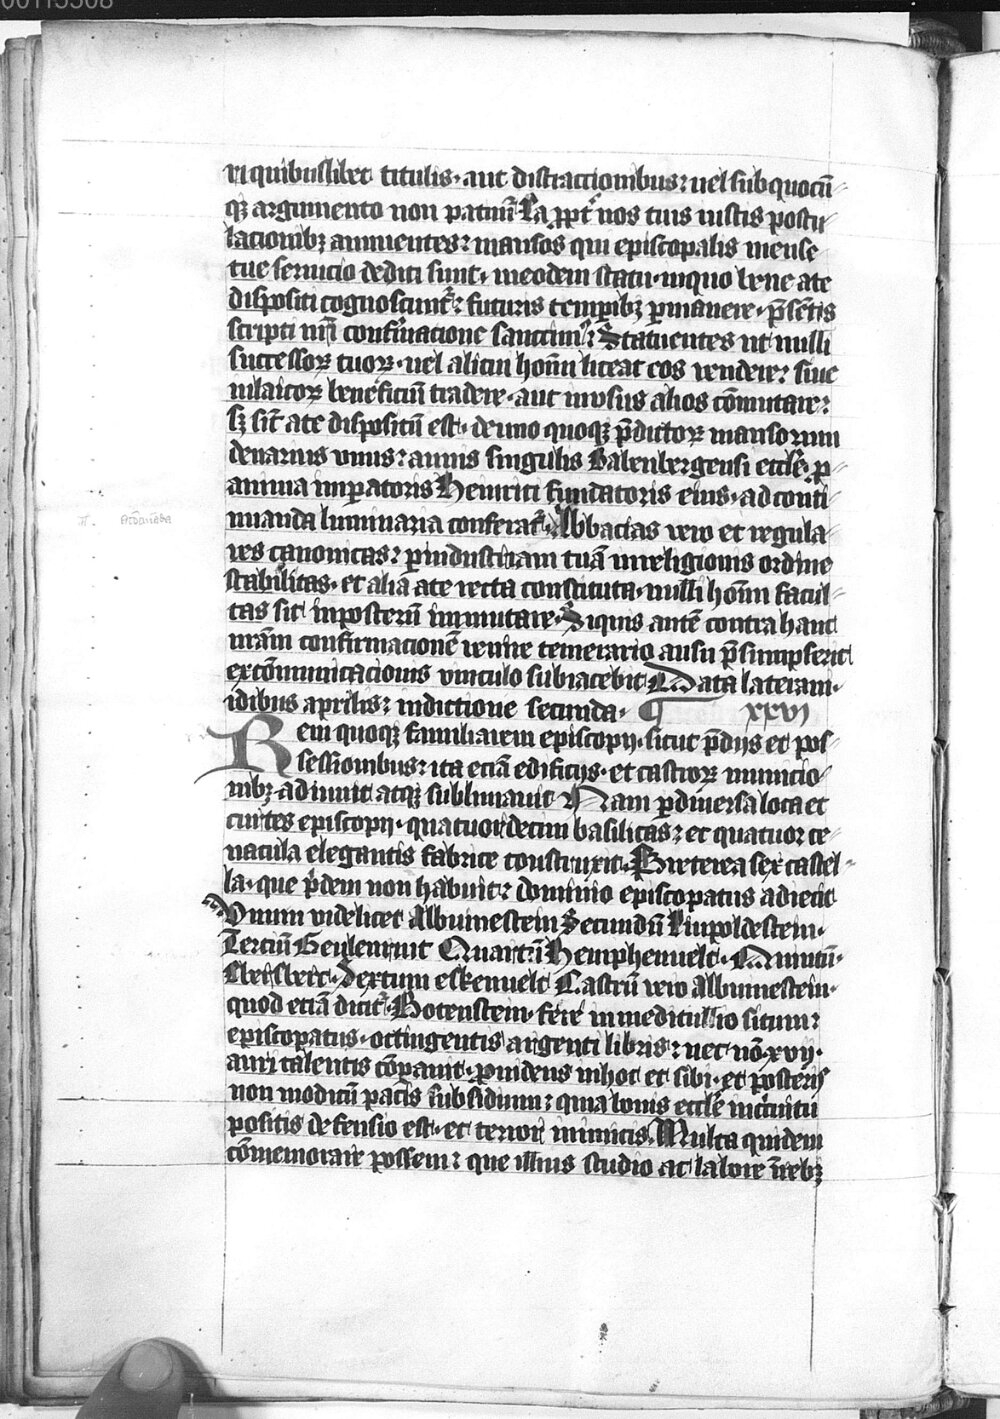 ri quibuslibet titulis · aut distractionibus : uel sub quocū
qꝫ argumento non patim̄ Ea ꝓpt̄ nos tuis iustis postu
lacionibꝫ annuentes : mansos qui episcopalis mense
tue seruicio dediti sunt · in eodem statu · in quo bene a te
dispositi cognoscunt̄ : futuris temꝑibꝫ ꝑmanere · p̄sentis
scripti nr̄i confirmatione sanctim̄ : Statuentes ut nulli
successoꝝ tuoꝝ · uel alicui hom̄ liceat eos vendere : siue
in laicoꝝ beneficiū tradere · aut in usus alios cōmutare :
sꝫ sic̄ a te dispositū est · de uno quoqꝫ p̄dictoꝝ mansorum
denarius vnus : annis singulis Babenbergensi eccl̄e · ꝑ
anima imꝑatoris Heinrici fundatoris eius · ad conti
nuanda luminaria conferat̄ · Abbacias vero et regula
res canonicas : ꝑ industriam tuā in religionis ordine
stabilitas · et alia a te recta constituta · nulli hom̄ facul
tas sit inposterū inmutare · Siquis autē contra hanc
nr̄am confirmacionē venire temerario ausu p̄sumpserit
excōmunicacionis vinculo subiacebit Data laterani ·
idibus aprilis : indictione secunda · xxvi
Rem quoqꝫ familiarem episcopij · sicut p̄dijs et pos
sessionibus : ita eciam edificijs · et castroꝝ municio
nibꝫ · adiuuit atqꝫ sublimauit Nam ꝑ diuersa loca et
curtes episcopij · quatuordecim basilicas : et quatuor ce
nacula elegantis fabrice construxit · Preterea sex castel
la · que p̄dem non habuit : dominio episcopatus adiecit
Vnum videlicet Albuinestein Secundū Liupoldestein ·
Terciū Geylenruit Quartū Hemphenuelt · Quintū ·
Sextum eskenuelt Castrū vero Albuinestein ·
quod eciā dicit̄ · Botenstein · fere in meditullio situm :
episcopatus · octingentis argenti libris : nec nō · xvij ·
auri talentis cōparauit · ꝓuidens in hoc et sibi · et posteris
non modicū pacis subsidium : quia bonis eccl̄e in circuitu
positis defensio est · et terror inimicis Multa quidem
cōmemorare possem : que illius studio ac labore